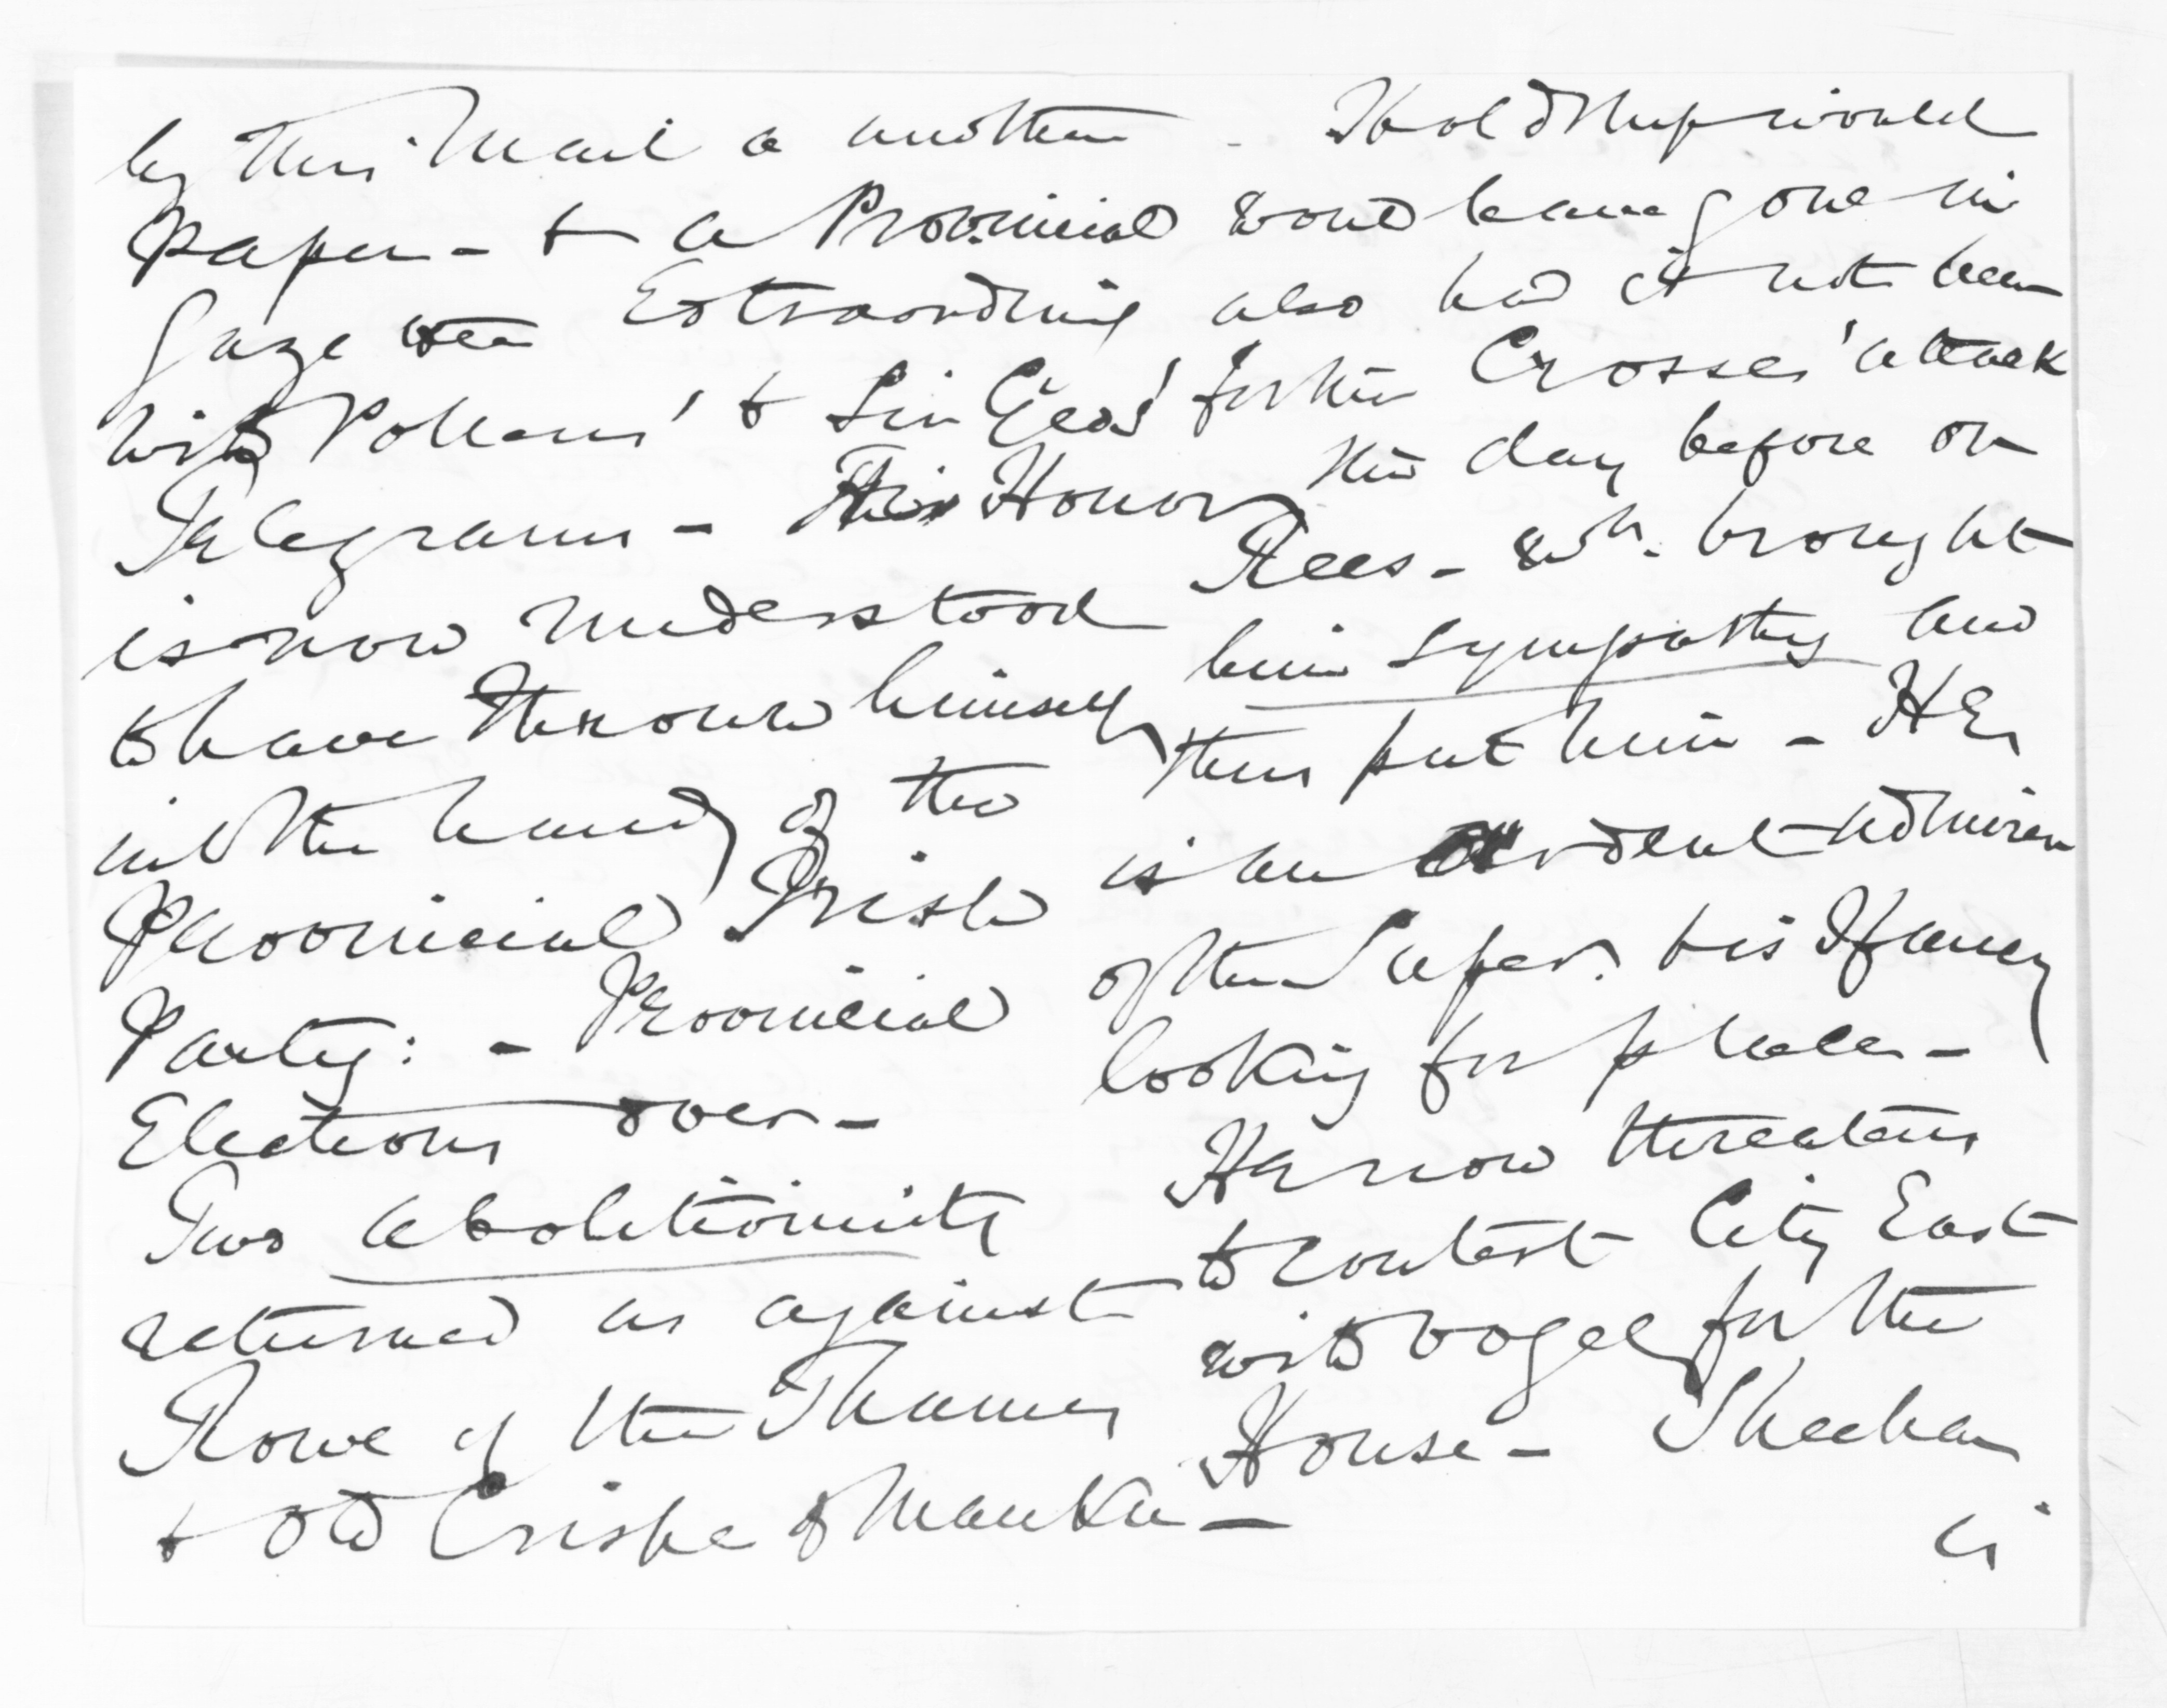 by this Mail a another
Paper - & a Provincial
Gazette Extraordiny
with Pollens' & Sir Geos'
Telegrams - His Honor
is now understood
to have thrown himself
into the hands of the
Provincial Irish
Party: - Provincial
Elections over -
Two abolitionists
returned as against
Rowe of the Thames
& old Crispe of Mauku -
would
would have gone in
also had it not been
for the Crosses' attack
the day before on
Rees - wh. brought
him sympathy and
thus put him - He
is an ardent admirer
of the Super. & is I fancy
looking for place -
He now threatens
to contest City East
with Vogel for the
House - Sheehan
is